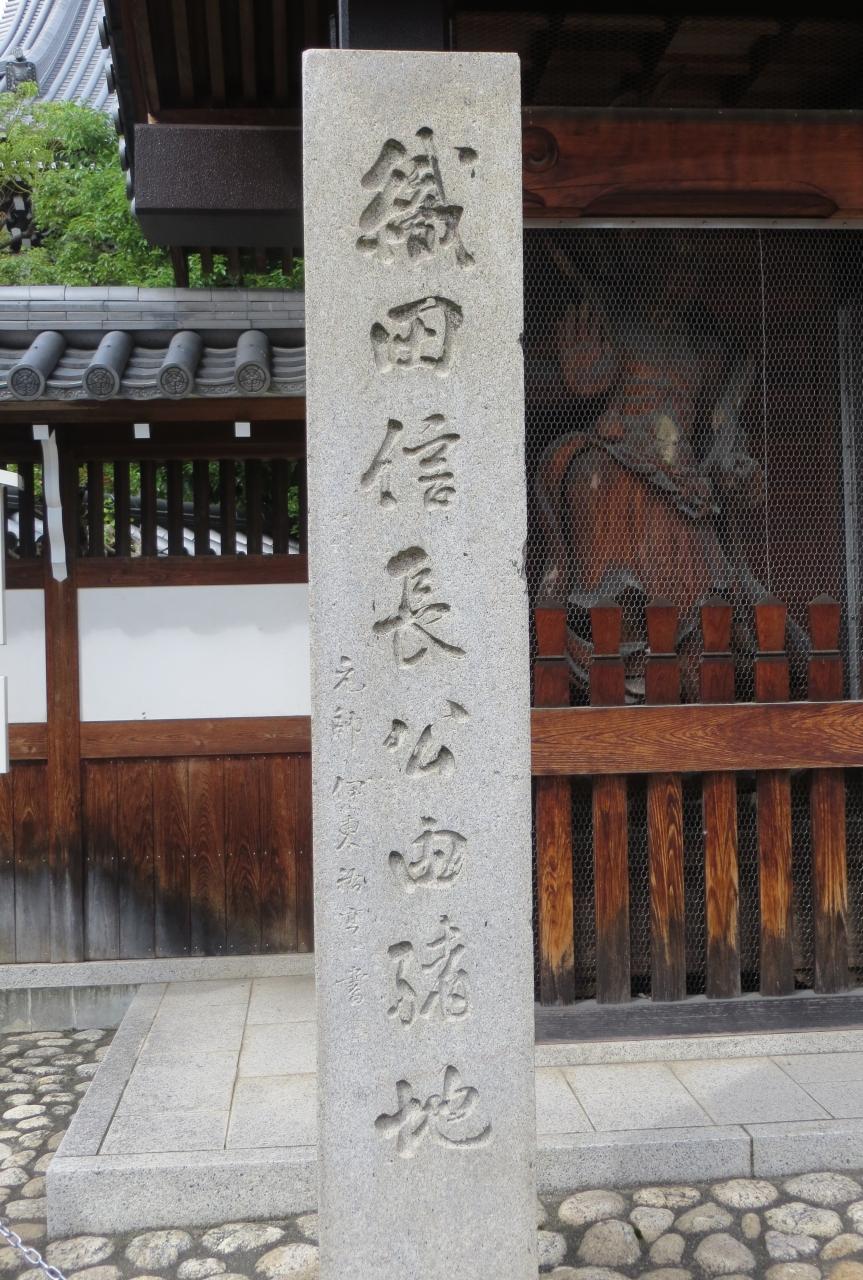 織田信長公由緒地
元帥伊東祐亨書